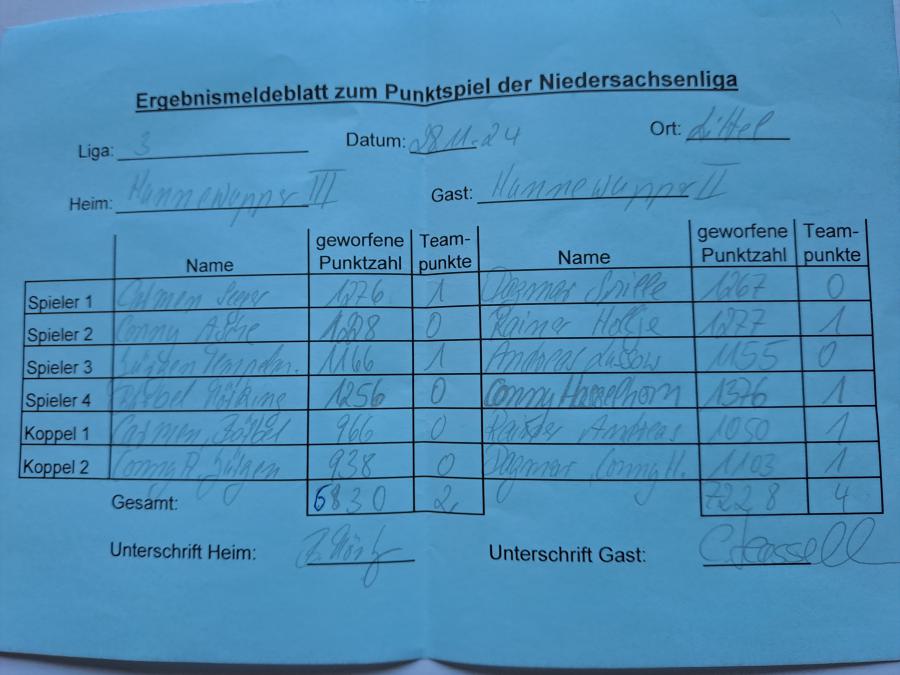 Ergebnismeldeblatt zum Punktspiel der Niedersachsenliga
Liga: 3 Datum: 28.11.24 Ort: Littel
Heim: Hannewupper III Gast: Hannewupper II
Name geworfene Punktzahl Team-punkte Name geworfene Punktzahl Team-punkte
Spieler 1 Carmen 1276 1 Dagmar Spille 1267 0
Spieler 2 Conny 1228 0 Rainer Holtje 1277 1
Spieler 3 1166 1 Andreas Lussow 1155 0
Spieler 4 1256 0 Conny Hasselhorn 1376 1
Koppel 1 Carmen, 966 0 Andreas 1050 1
Koppel 2 Conny A. Jürgen 938 0 Dagmar, Conny H. 1103 1
Gesamt: 6830 2 7228 4
Unterschrift Heim: Unterschrift Gast: